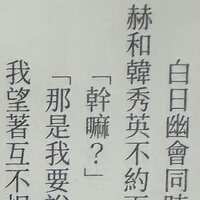 白日幽會同時
赫和韓秀英不約而
「幹嘛？」
「那是我要說
我望著互不相